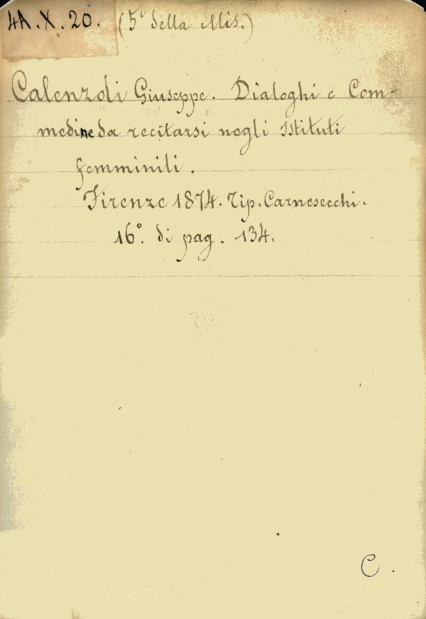 4A.X.20. (5° della Mis.)
Calenzoli Giuseppe. Dialoghi e Com-
medine da recitarsi negli Istituti
femminili.
Firenze 1874. Tip. Carnesecchi.
16°. di pag. 134.
C.